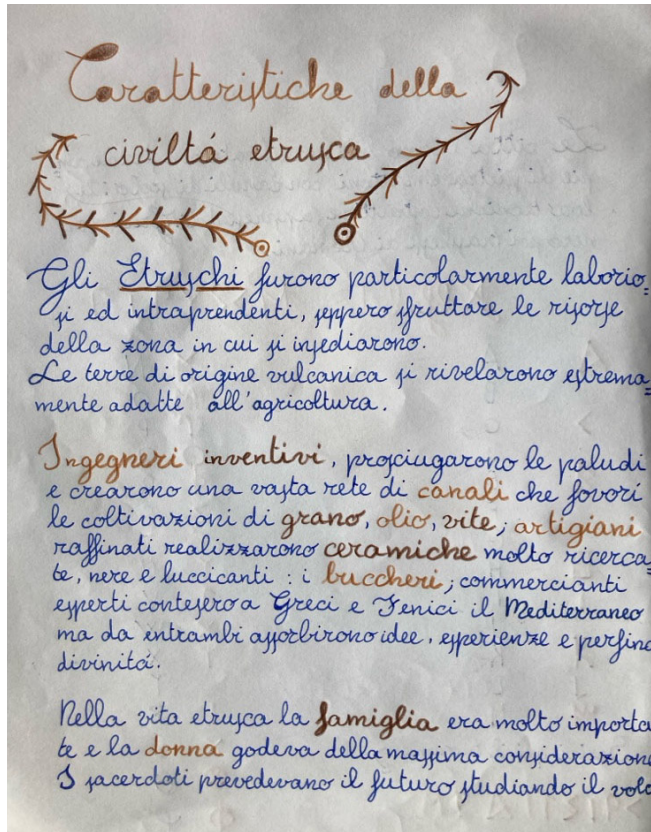 Caratteristiche della
civiltá etrusca
Gli Etruschi furono particolarmente laborio=
si ed intraprendenti, seppero sfruttare le risorse
della zona in cui si insediarono.
Le terre di origine vulcanica si rivelarono estrema=
mente adatte all'agricoltura.
Ingegneri inventivi, prosciugarono le paludi
e crearono una vasta rete di canali che favorí
le coltivazioni di grano, olio, vite; artigiani
raffinati realizzarono ceramiche molto ricerca=
te, nere e luccicanti: i buccheri; commercianti
esperti contesero a Greci e Fenici il Mediterraneo
ma da entrambi assorbirono idee, esperienze e perfino
divinitá.
Nella vita etrusca la famiglia era molto importa
te e la donna godeva della massima considerazione
I sacerdoti prevedevano il futuro studiando il volo